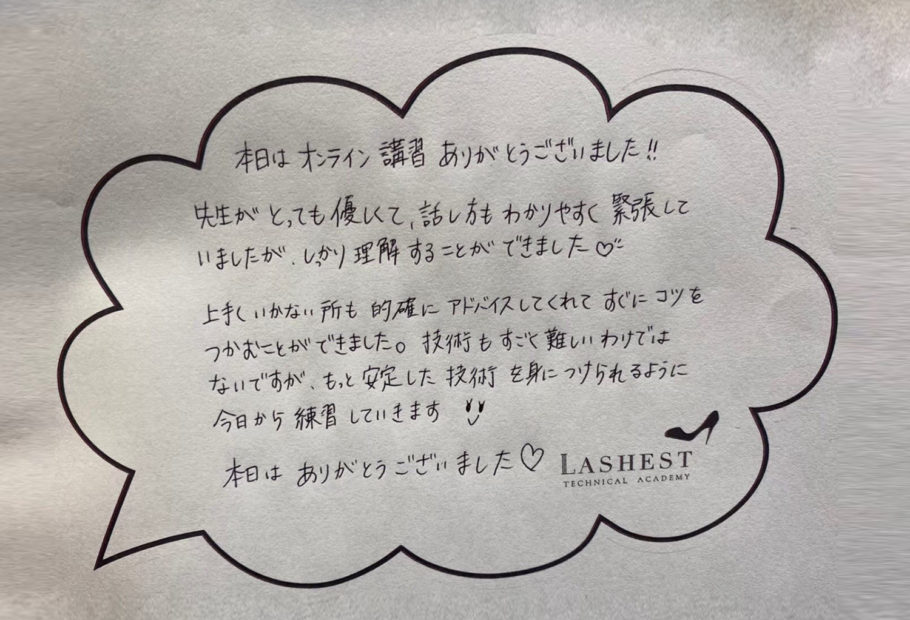 本日は オンライン 講習 ありがとうございました!!
先生が とっても 優しくて、話し方も わかりやすく 緊張して
いましたが、しっかり 理解することが できました♡
上手くいかない所も 的確に アドバイスしてくれて すぐに コツを
つかむことができました。技術も すごく 難しいわけでは
ないですが、もっと 安定した 技術 を身につけられるように
今日から 練習していきます
本日は ありがとうございました♡
LASHEST
TECHNICAL ACADEMY